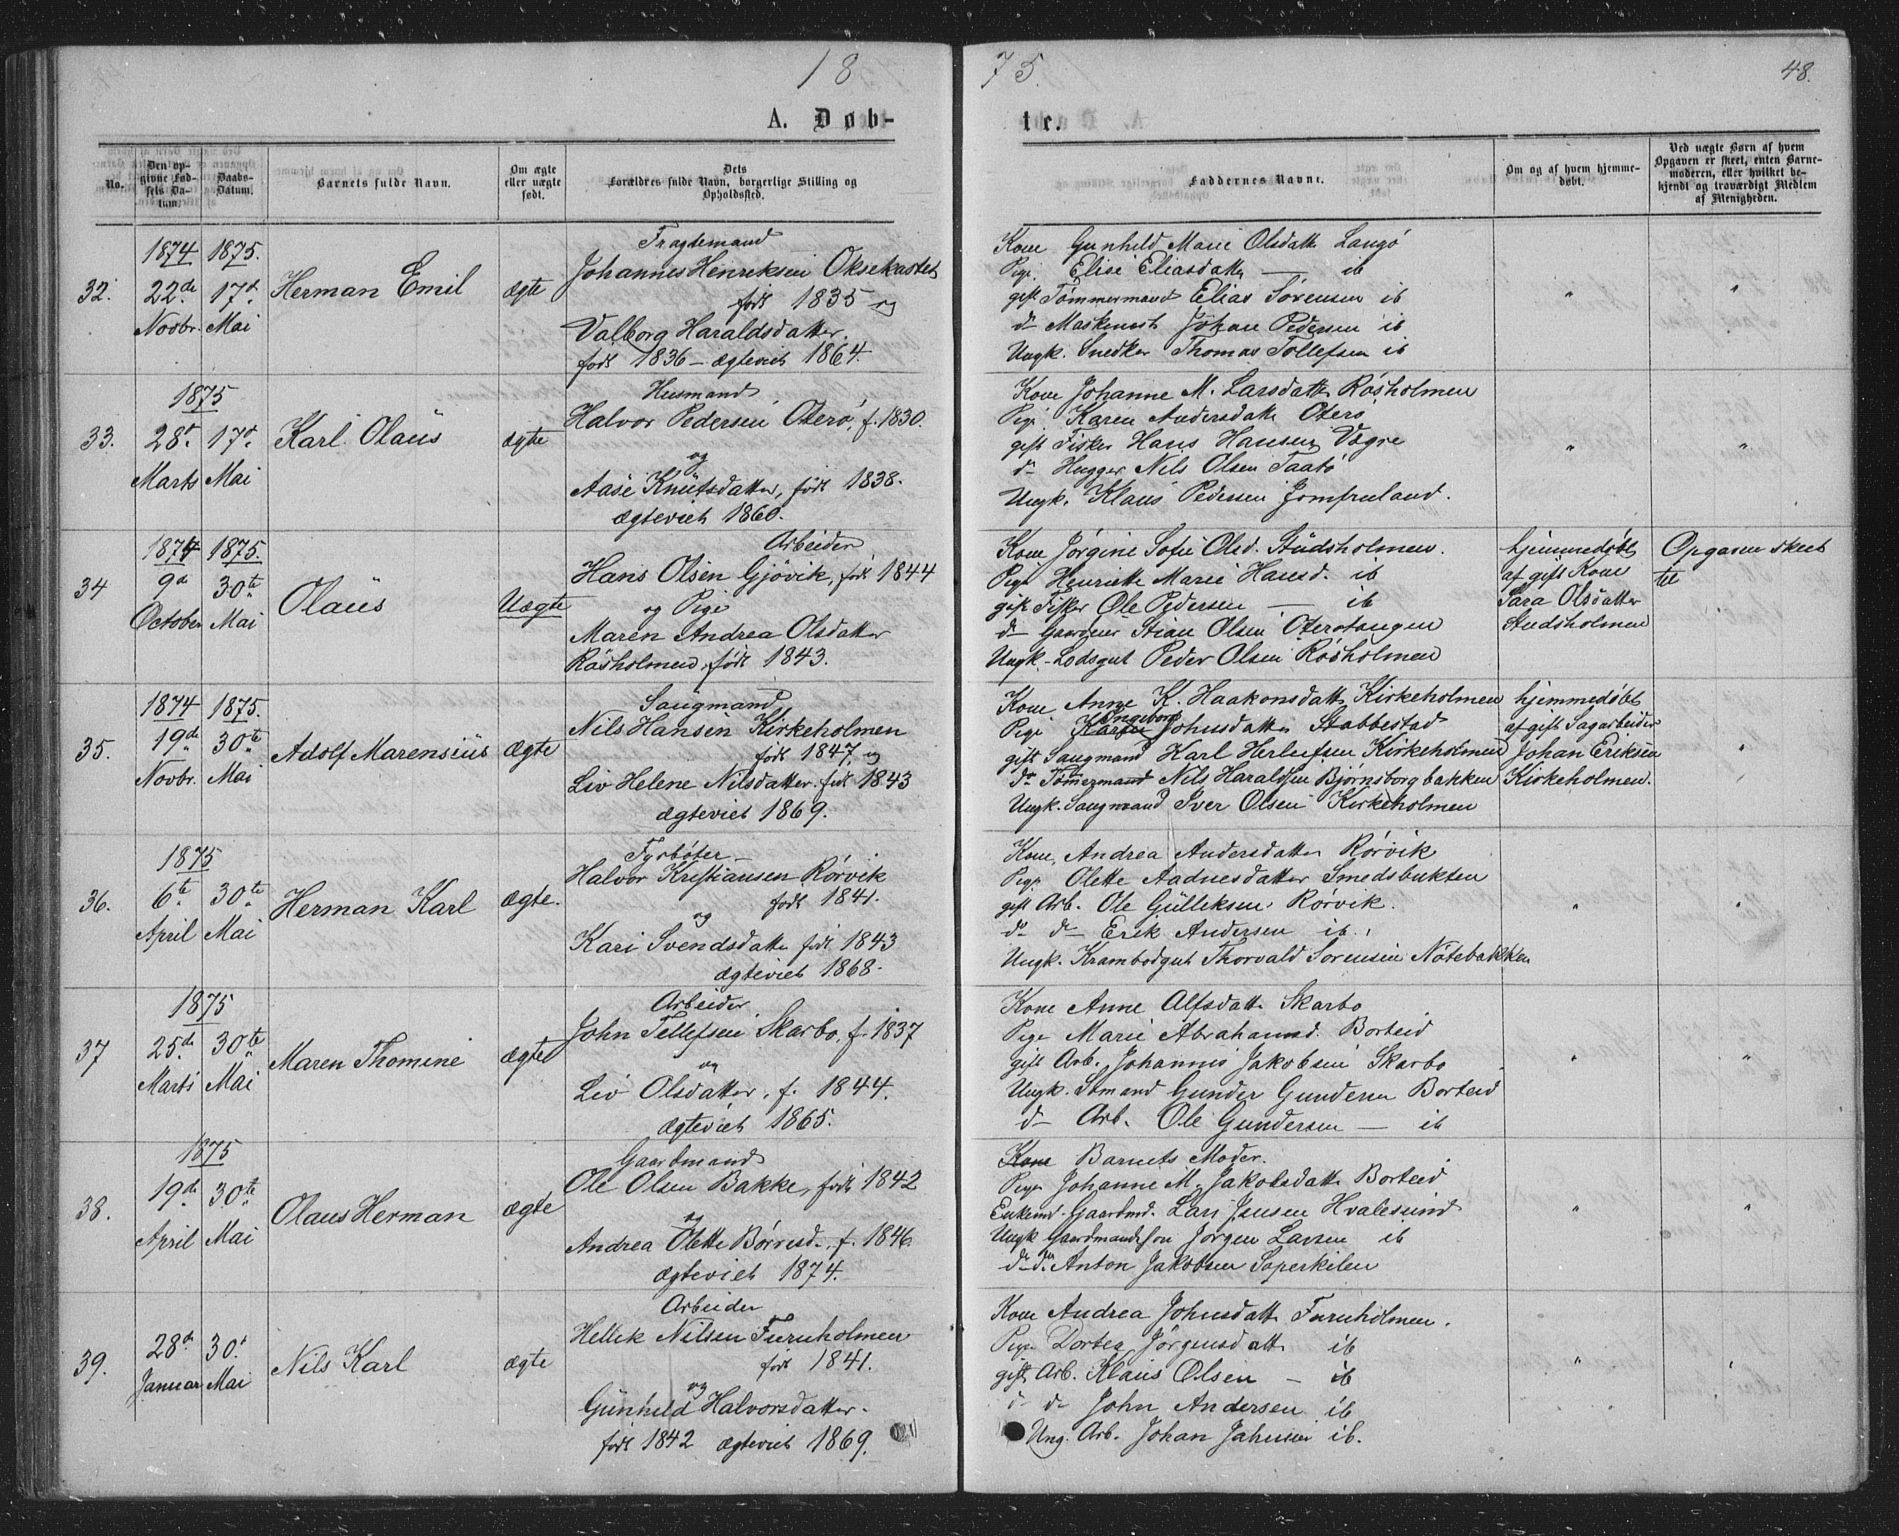 18
75.
48.
A. Døb-
te.
No.
Den op-
givne Fød-
sels Da-
tum.
Daabs-
Datum.
Barnets fulde Navn.
Om ægte
eller uægte
født.
Dets
Forældres fulde Navn, borgerlige Stilling og
Opholdssted.
Faddernes Navne.
Om og af hvem hjemme-
døbt.
Ved uægte Børn af hvem
Opgaven er skeet, enten Barne-
moderen, eller hvilket be-
kjendt og troværdigt Medlem
af Menigheden.
32.
1874
22de
Novbr.
1875.
17d
Mai
Herman Emil
ægte
Fragtemand
Johannes Henriksen Oksekastet
født 1835 og
Valborg Haraldsdatter.
født 1836 - ægteviet 1864.
Kone Gunhild Marie Olsdatt. Langø
Pige. Elise Eliasdatter — ib
gift Tømmermand Elias Sørensen ib
do Maskinist Johan Pedersen ib
Ungk. Snedker Thomas Tollefsen ib
"
"
33.
1875
28d
Marts
17d
Mai
Karl Olaüs
ægte
Husmand
Halvor Pedersen Oterø, f. 1830.
og
Aase Knütsdatter, født 1838.
ægteviet 1860.
Kone Johanne M. Larsdatt. Råsholmen
Pige. Karen Andersdatt. Oterø
gift Fisker Hans Hansen Vægre
do Hugger Nils Olsen Taatø
Ungk. Klaus Pedersen Jomfruland.
"
"
34
1874
9d
October
1875.
30te
Mai
Olaüs
Uægte
Arbeider
Hans Olsen Gjøvik, født 1844
og Pige
Maren Andrea Olsdatter
Råsholmen, født 1843.
Kone Jørgine Sofie Olsd. Stüdsholmen.
Pige Henriette Marie Hansd. ib
gift Fisker Ole Pedersen — ib
do Gaardeier Stian Olsen Oterøtangen
Ungk. Lodsgut Peder Olsen Råsholmen
hjemmedøbt
af gift Kone
Sara Olsdatter
Studsholmen
Opgaven skeet
til
35.
1874
19de
Novbr.
1875.
30te
Mai
Adolf Marensiüs
Ægte
Saugmand
Nils Hansen Kirkeholmen
født 1847, og
Liv Helene Nilsdatter født 1843
ægteviet 1869.
Kone Anne K. Haakonsdatt. Kirkeholmen
Ingeborg
Pige Karen Johnsdatter Stabbestad
gift Saugmand Karl Herlufsen Kirkeholmen
do Tømmermand Nils Haraldsen Bjørnsborgbakken
Ungk. Saugmand Iver Olsen Kirkeholmen
hjemmedøbt
af gift Sagarbeider
Johan Eriksen
Kirkeholmen.
"
36.
1875
6te
April
30te
Mai
Herman Karl
ægte.
Fyrbøter
Halvor Kristiansen Rørvik
født 1841.
og
Kari Svendsdatter født 1843
ægteviet 1868.
Kone, Andrea Andersdatter Rørvik
Pige Olette Aadnesdatter Smedsbukten
gift Arb. Ole Gülleksen Rørvik.
do do Erik Andersen ib.
Ungk. Krambodgut Thorvald Sørensen Nøtebakken
"
"
37
1875
25de
Marts
30te
Mai
Maren Thomine
ægte
Arbeider
John Tellefsen Skarbo, f. 1837
og
Liv Olsdatter, f. 1844.
ægteviet 1865.
Kone Anne Alfsdatt. Skarbo
Pige Marie Abrahamsd. Borteid
gift Arb. Johannis Jakobsen Skarbo
Ungk. Sømand Gunder Gundersen Borteid
do Arb. Ole Gundersen — ib
"
"
38.
1875
19de
April
30te
Mai
Olaus Herman
ægte
Gaardmand
Ole Olsen Bakke, født 1842
og
Andrea Olette Børresd., f. 1846.
ægteviet 1874.
Kone Barnets Moder.
Pige Johanne M. Jakobsdatt. Borteid
Enkemd. Gaardmd. Lars Jensen Hvalesund
Ungk. Gaardmandssøn Jørgen Larsen ib
do do Anton Jakobsen Soperkilen
"
"
39.
28de
Januar
30t
Mai
Nils Karl
ægte
Arbeider
Hellik Nilsen Furuholmen
født 1841.
og
Günhild Halvorsdatter.
født 1842 ægteviet 1869.
Kone Andrea Johnsdatt. Furuholmen.
Pige Dortea Jørgensdatt. ib
gift Arb. Klaus Olsen — ib
do do John Andersen ib
Ung. Arb. Johan Jahnsen ib.
"
"